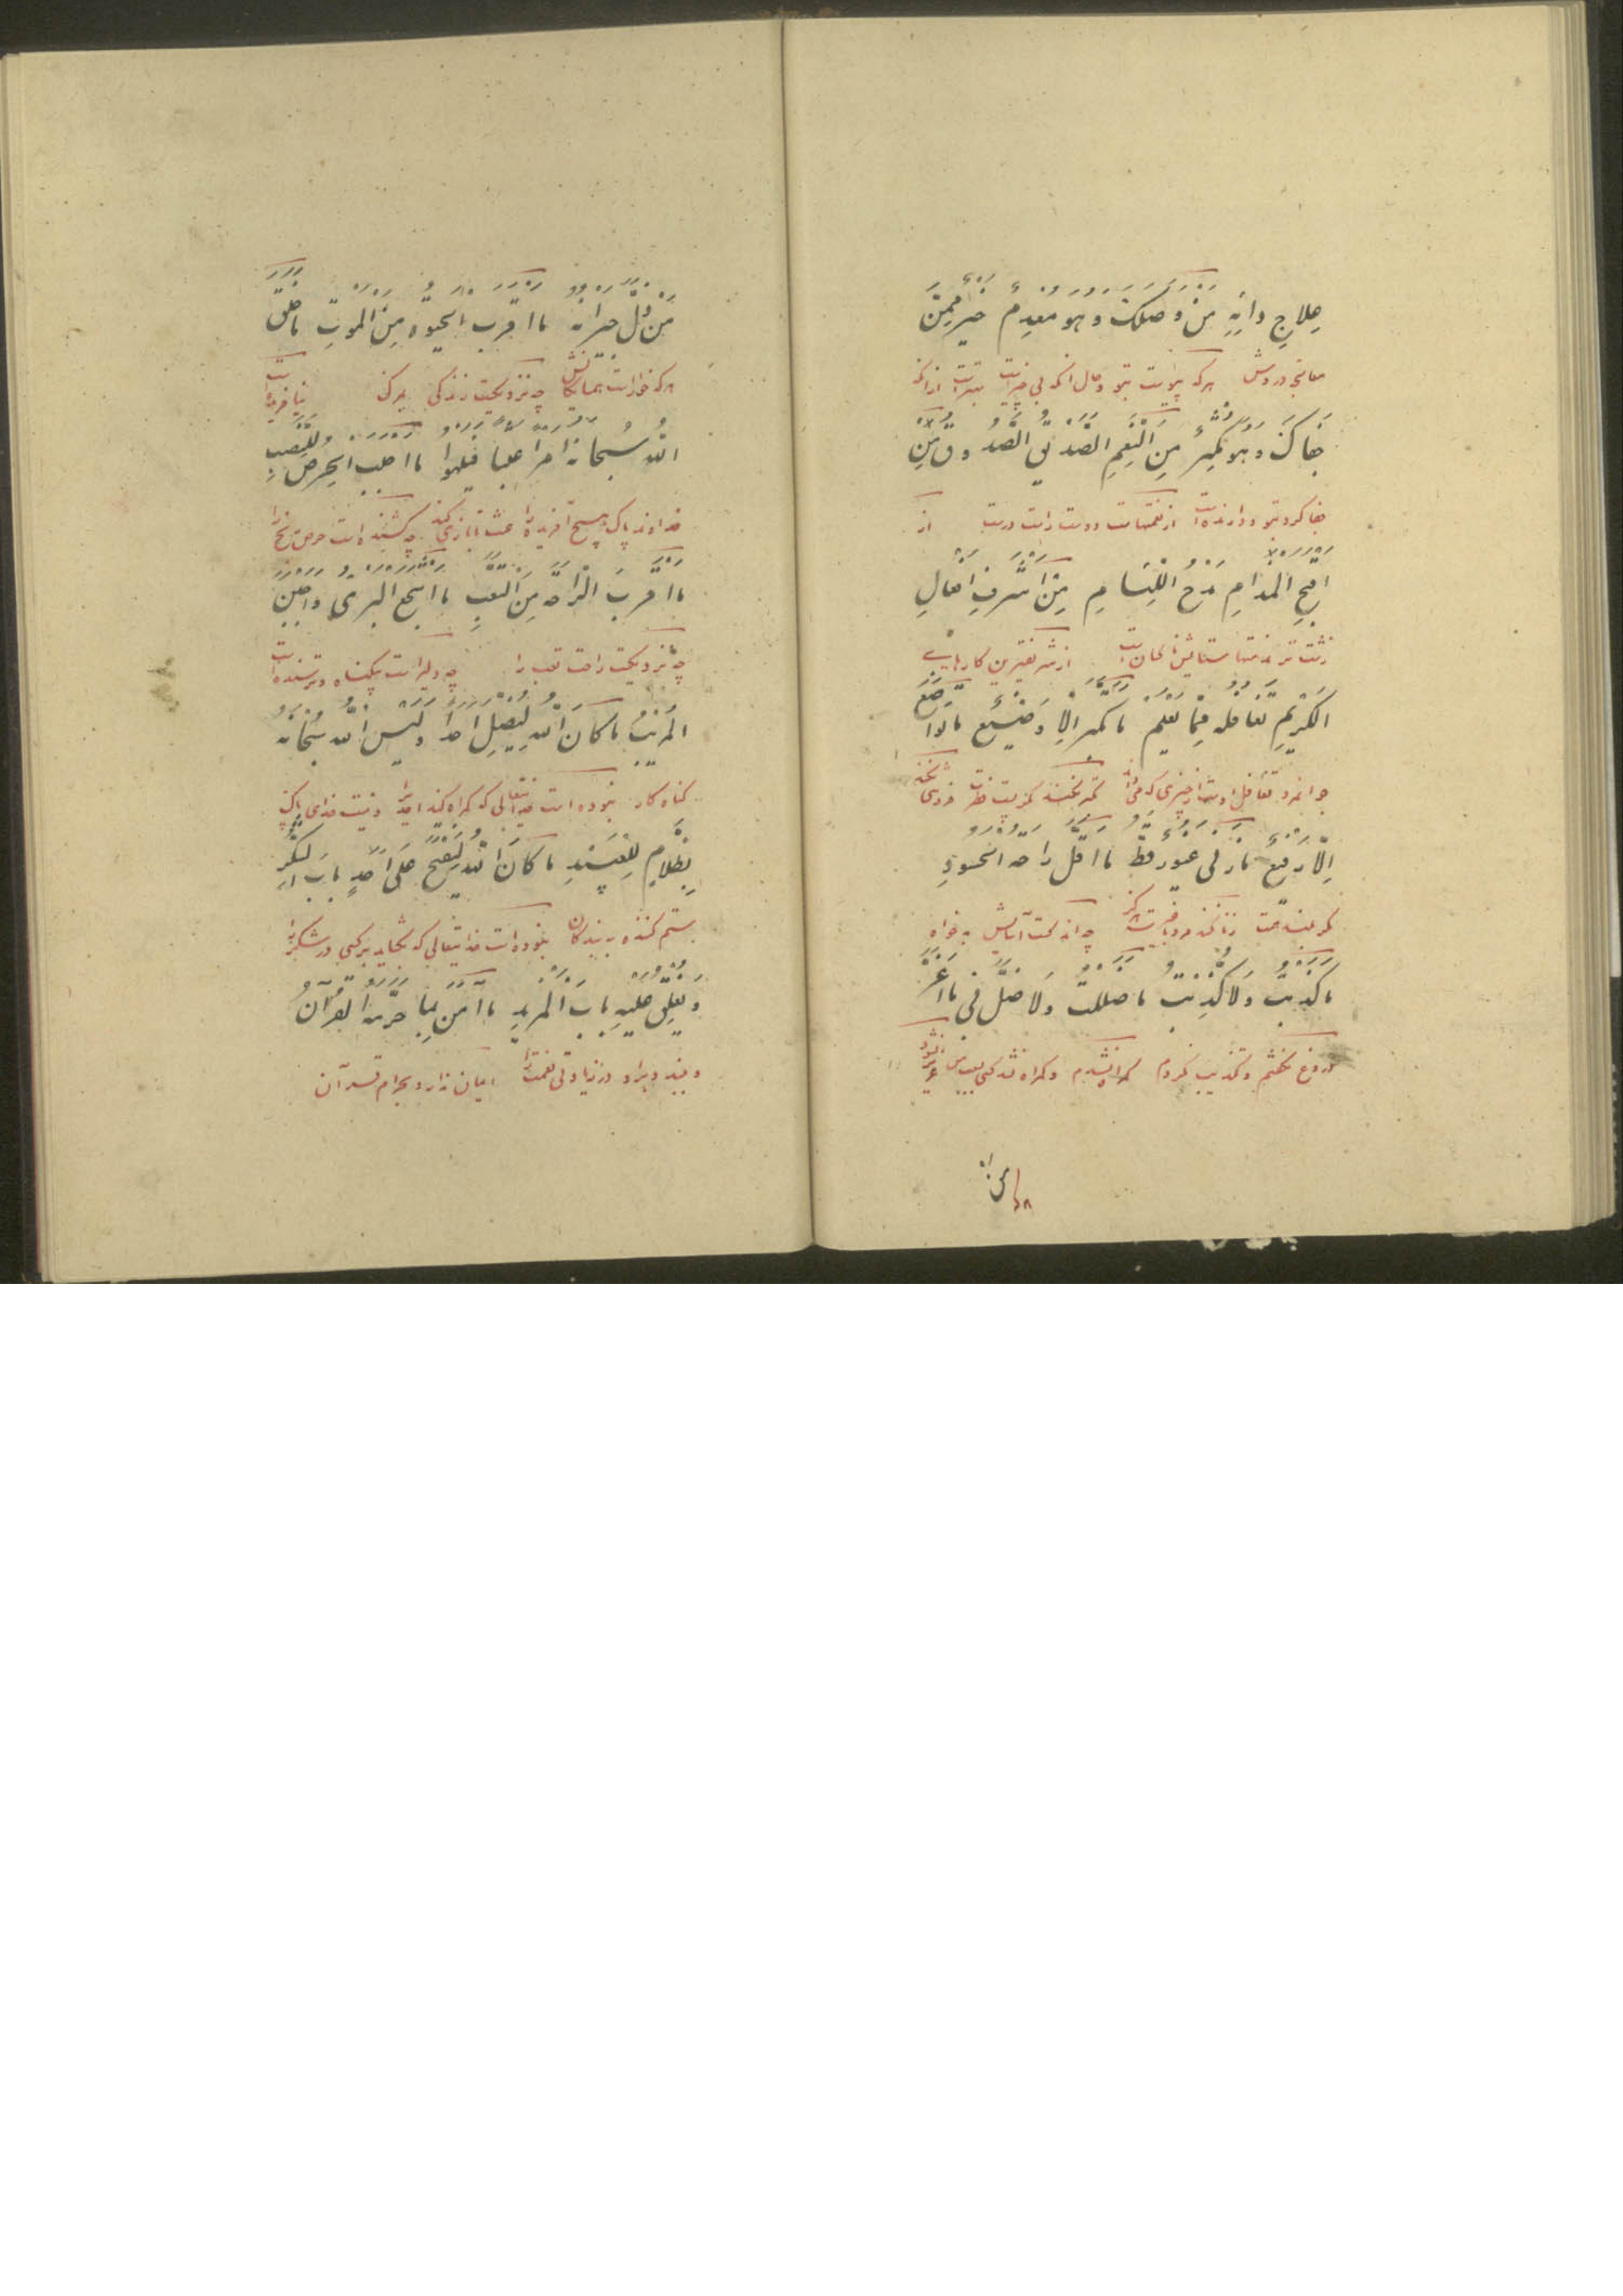 عِلاجِ دائِهِ مَنْ وَصَلَكَ وَهُوَ مُعْدِمٌ خَيْرٌ مِمَّنْ
معالجه دردش هر که پیوست بتو و حال آنکه بی چیزاست بهتراست ازانکه
جَفاكَ وَهُوَ مُكْثِرٌ مِنَ النِّعَمِ الصَّديقُ الصَّدُوقُ مَنِ
جفا کرد بتو ودارنده است از نعمتهاست دوست راست درست از
أَقْبَحِ الْمَذامِ مَدْحُ اللِّئامِ مِنْ أَشْرَفِ أَفْعالِ
زشت تر مذمتها ستایش لئیمان است از شریفترین کارهای
الْكَريمِ تَغافُلُهُ عَمّا يَعْلَمُ ما تَكَبَّرَ إِلّا وَضيعٌ ما تَواضَعَ
جوانمرد تغافل اوست از چیزی که میداند تکبر نکند مگر پست فطرت فروتنی نکند
إِلّا رَفيعٌ ما زَنى غَيُورٌ قَطُّ ما أَقَلَّ راحَةَ الْحَسُودِ
مگر بلند همت زنا نکند مرد با غیرت هرگز چه اندکست آسایش بدخواه
ما كَذَبْتُ وَلا كُذِّبْتُ ما ضَلَلْتُ وَلا ضُلَّ بي ما أَعَزَّ
دروغ نگفتم و تکذیب نکردم گمراه نشدم و گمراه نشد کسی بسبب من عزیز نشود
مَنْ ذَلَّ جيرانُهُ ما أَقْرَبَ الْحَيوةَ مِنَ الْمَوْتِ ما خَلَقَ
هرکه خوار است همسایگانش چه نزدیکست زندگی بمرگ نیافریده است
اللهُ سُبْحانَهُ أَمْراً عَبَثاً فَيَلْهُوَ ما أَجْلَبَ الْحِرْصَ لِلنَّصَبِ
خداوند پاک هیچ آفریده را عبث تا بازی کند چه کشنده است حرص رنج را
ما أَقْرَبَ الرّاحَةَ مِنَ التَّعَبِ ما أَشْجَعَ الْبَرِيءَ وَأَجْبَنَ
چه نزدیکست راحت تعب را چه دلیر است بیگناه و ترسنده است
الْمُريبَ ما كانَ اللهُ لِيُضِلَّ أَحَداً وَلَيْسَ اللهُ سُبْحانَهُ
گناه کار نبوده است خدایتعالی که گمراه کند احدیرا و نیست خدای پاک
بِظَلّامٍ لِلْعَبيدِ ما كانَ اللهُ لِيَفْتَحَ عَلى أَحَدٍ بابَ الشُّكْرِ
ستم کننده به بندگان نبوده است خدایتعالی که بگشاید بر کسی در شکر را
وَيُغْلِقَ عَلَيْهِ بابَ الْمَزيدِ ما آمَنَ بِما حَرَّمَهُ الْقُرْآنُ
و بندد بر او در زیادتی نعمت را ایمان ندارد بحرام قرآن